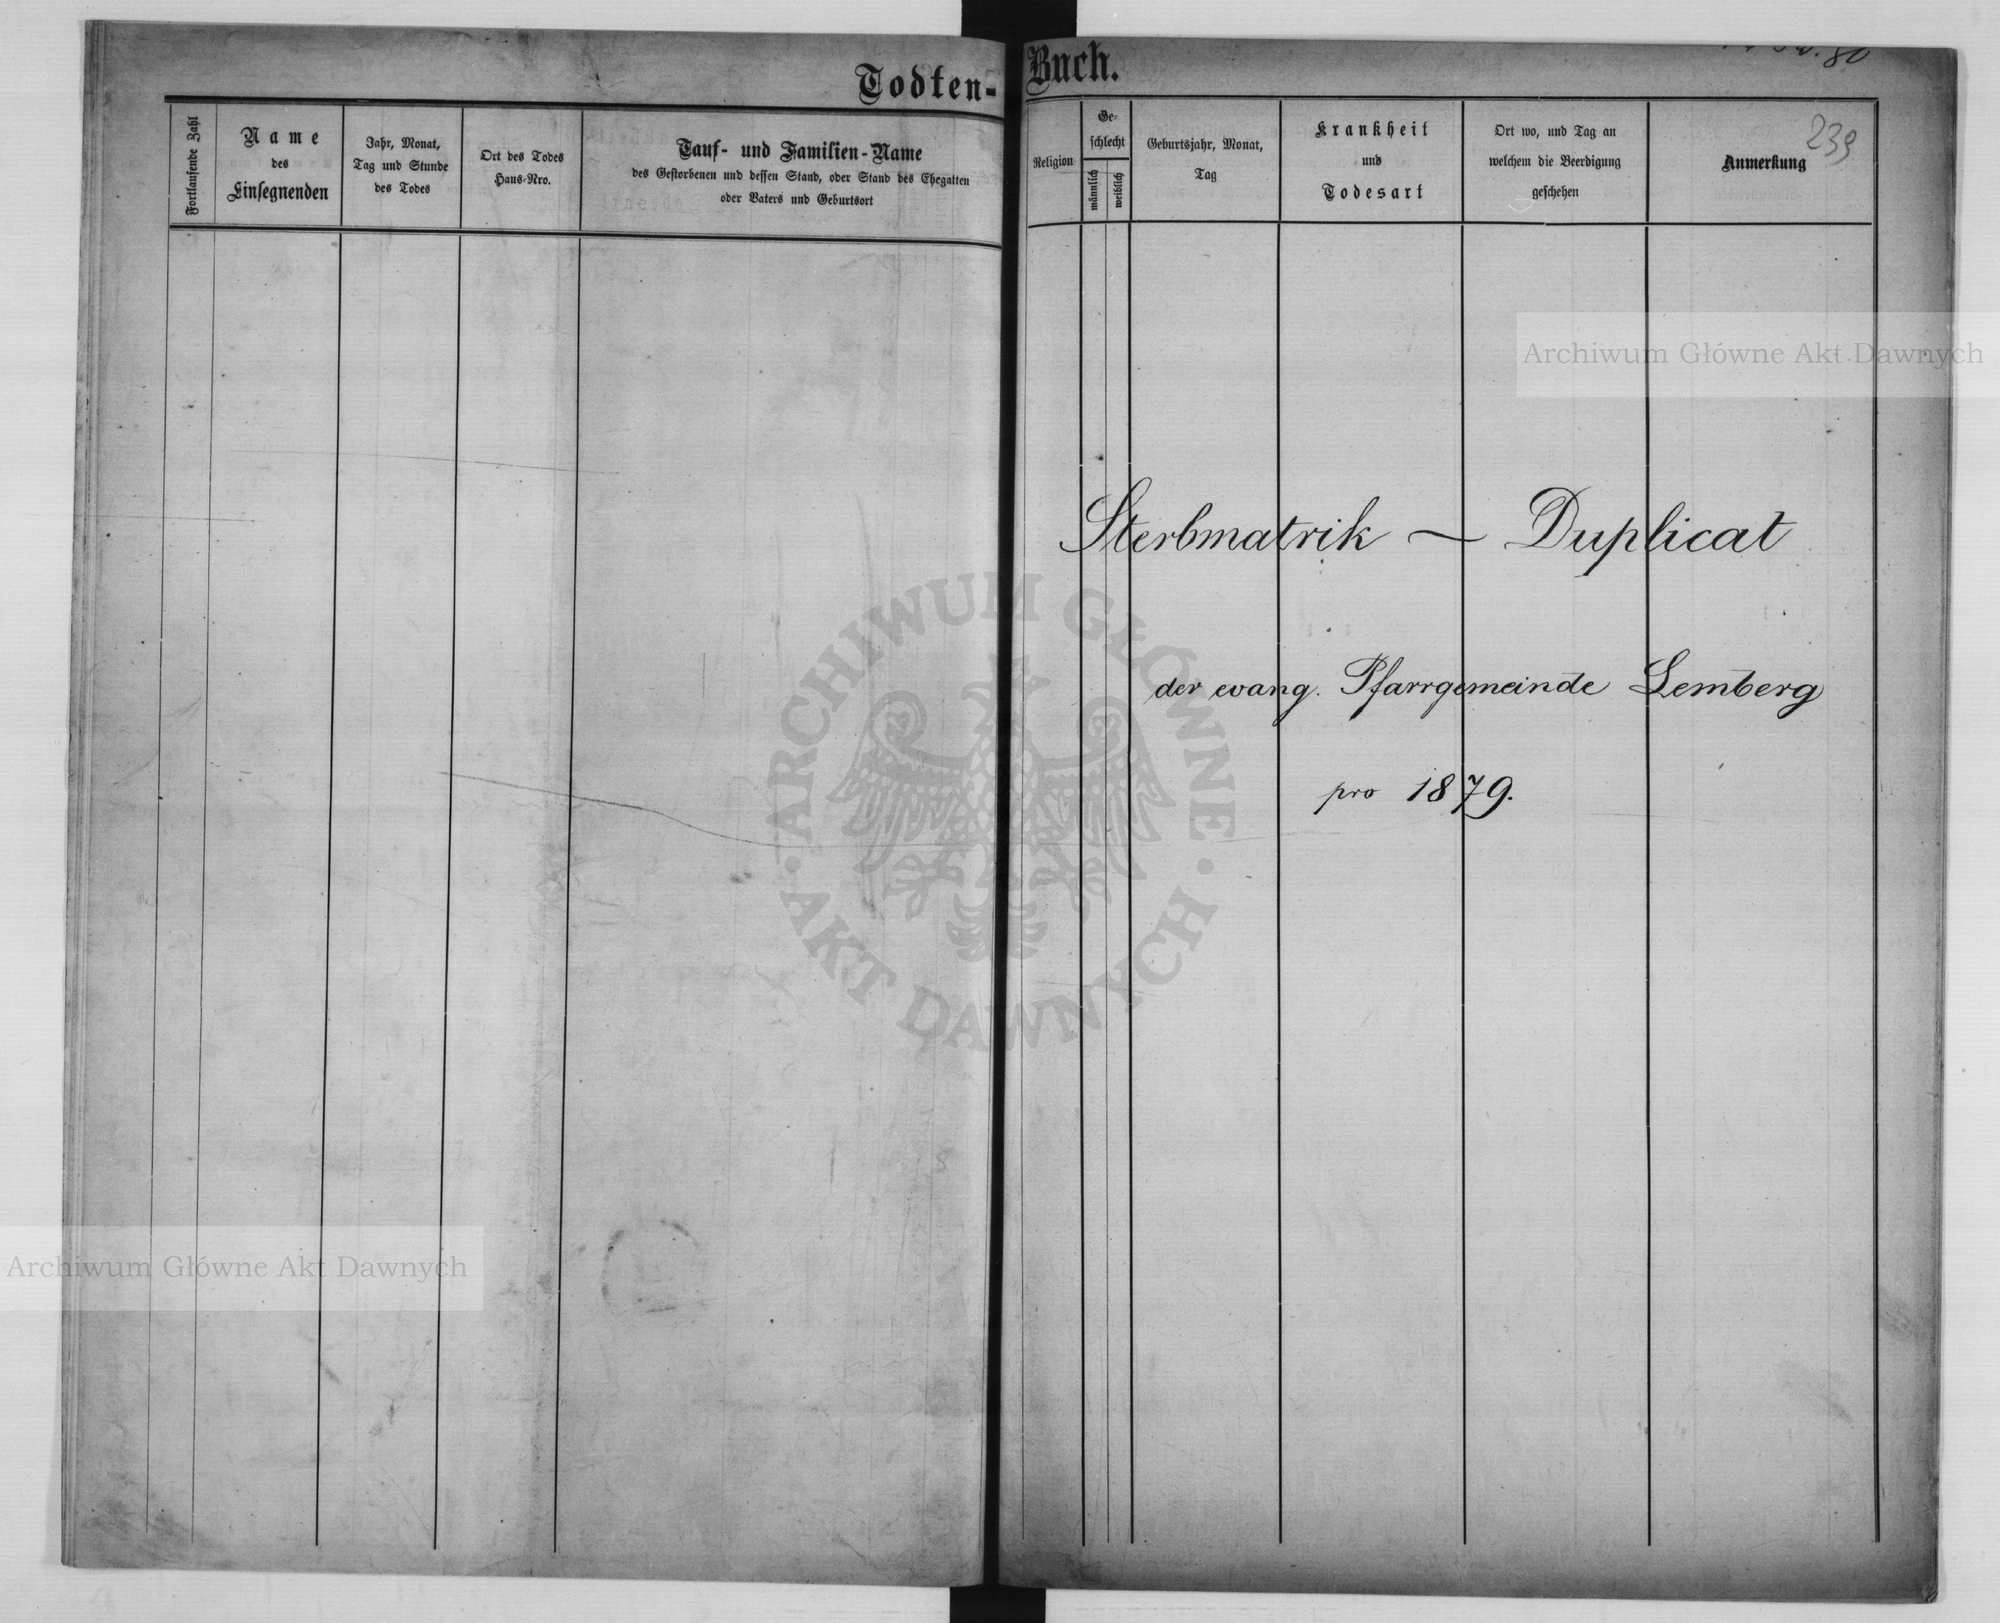 Todten-
Buch.
Fortlaufende Zahl
Name
des
Einsegnenden
Jahr, Monat,
Tag und Stunde
des Todes
Ort des Todes
Haus-Nro.
Tauf- und Familien-Name
des Gestorbenen und dessen Stand, oder Stand des Ehegatten
oder Vaters und Geburtsort
Religion
Ge-
schlecht
männlich
weiblich
Geburtsjahr, Monat,
Tag
Krankheit
und
Todesart
Ort wo, und Tag an
welchem die Beerdigung
geschehen
Anmerkung
239
Archiwum Główne Akt Dawnych
Sterbmatrik — Duplicat
der evang. Pfarrgemeinde Lemberg
pro 1879.
ARCHIWUM GŁÓWNE
· AKT DAWNYCH ·
Archiwum Główne Akt Dawnych